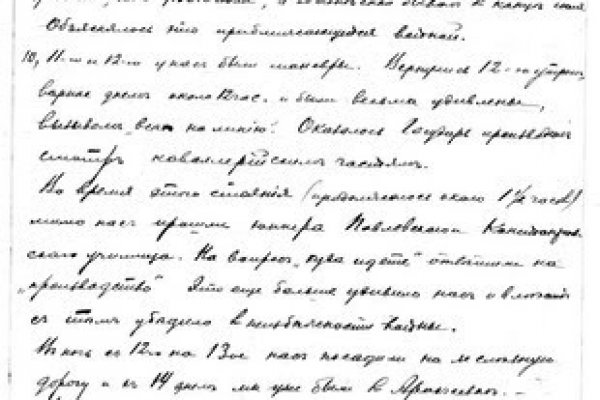 Объяснялось это приближающейся войной.
10, 11-го и 12-го у нас были маневры. Вернулись 12-го утром,
вернее днем около 12 час. и были весьма удивлены,
вызовом „всех на линию". Оказалось Государь производил
смотр кавалерийским частям.
Во время этого стояния (продолжалось около 1½ часов)
мимо нас прошли юнкера Павловского
училища. На вопрос „куда идете" ответили на
„производство" Это еще больше удивило нас и
с этим убедило в неизбежности войны.
В ночь с 12-го на 13-ое нас посадили на железную
дорогу и к 14 днем мы уже были в